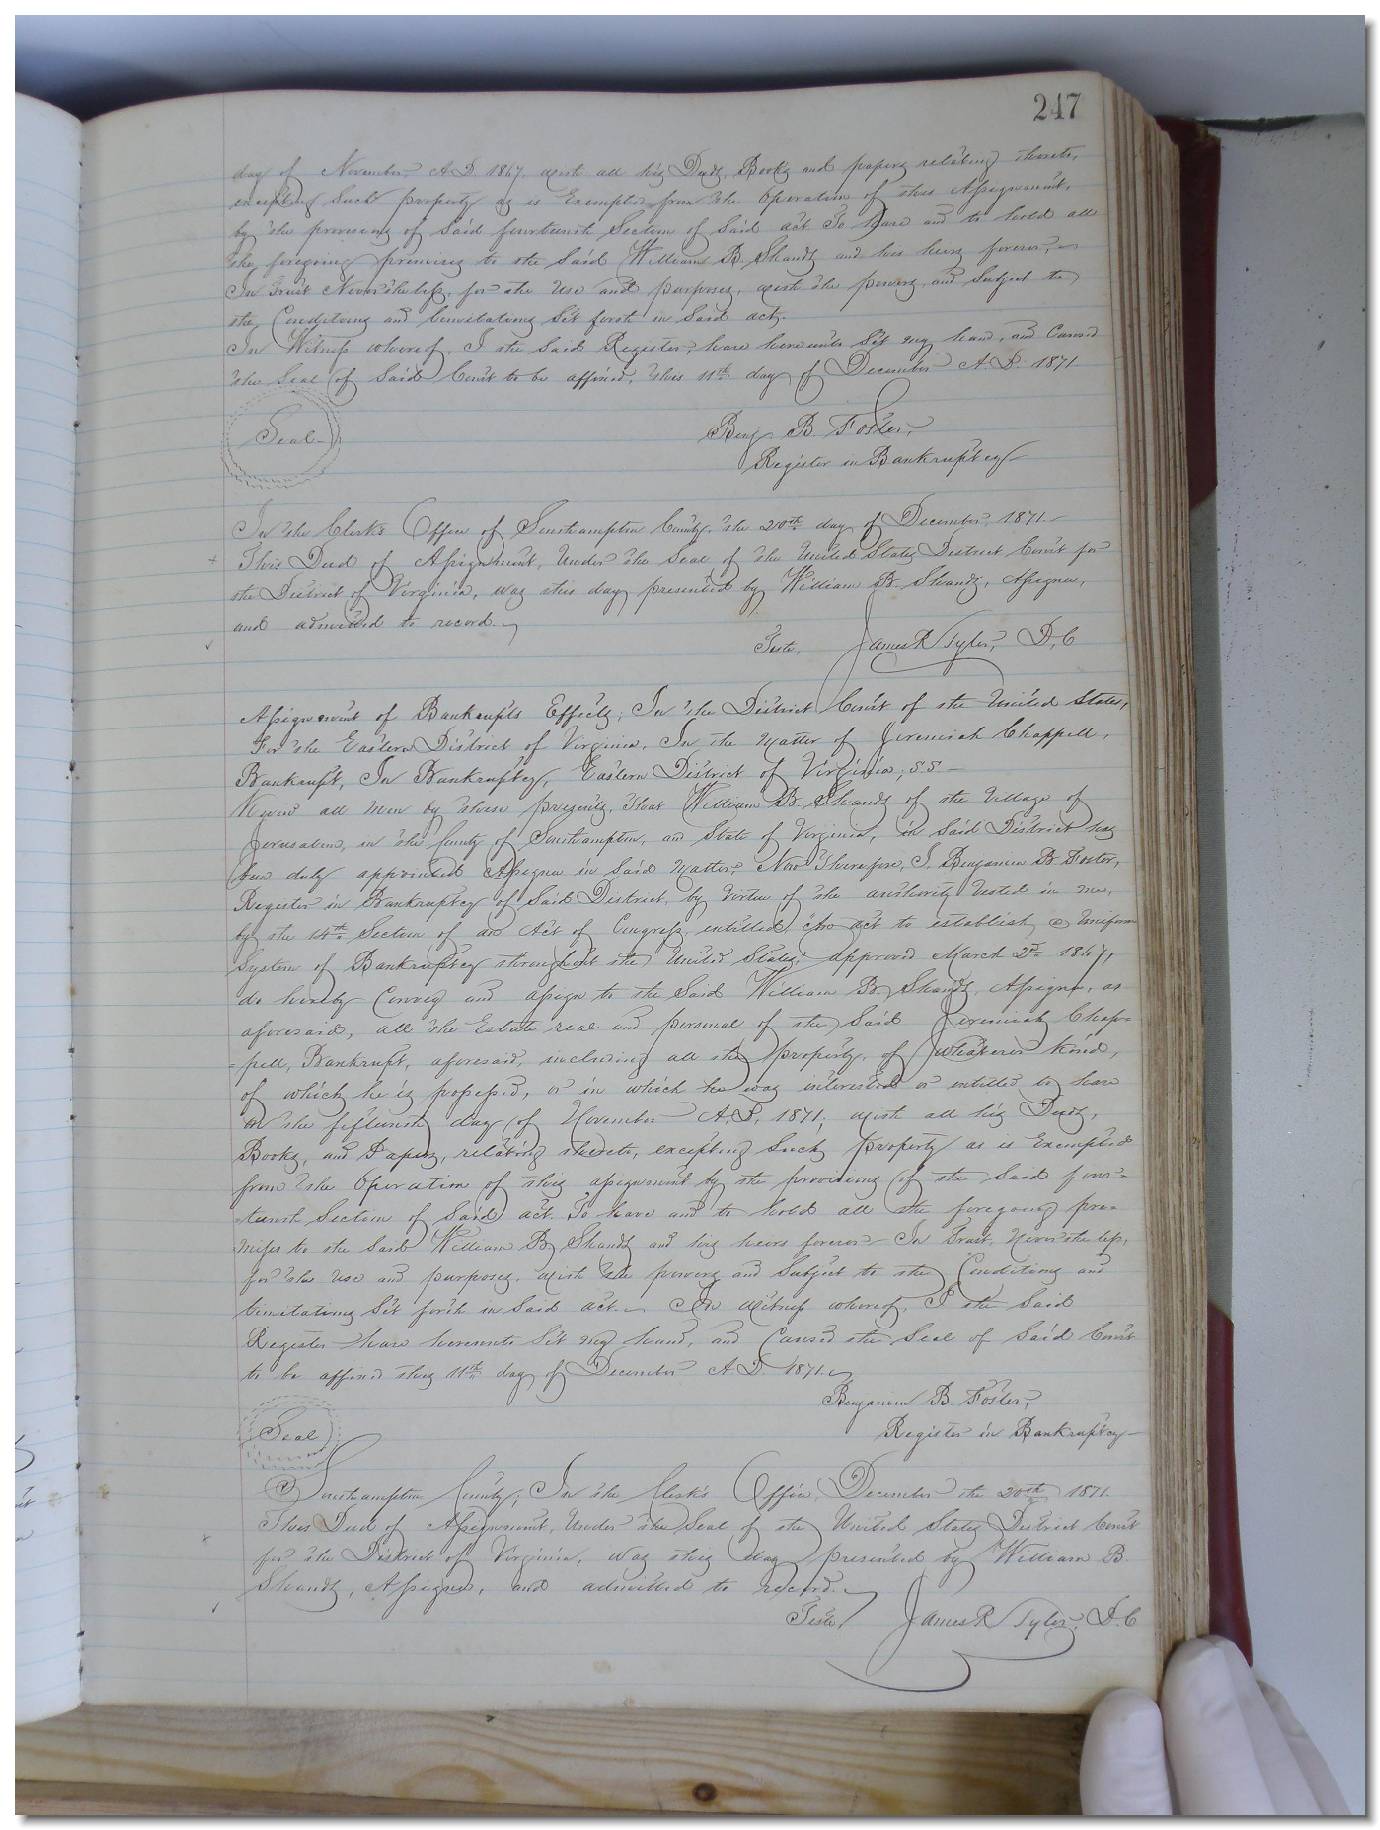 247
day of November A.D. 1867. with all his Deeds, Books and papers relating thereto,
excepting Such property as is Exempted from the Operation of this Assignment,
by the provisions of Said fourteenth Section of Said act To have and to hold all
the foregoing premises to the Said William B. Shands and his heirs forever,
In Trust Nevertheless, for the Use and purposes, with the powers, and Subject to
the, Conditions and limitations Set forth in Said act,
In Witness whereof, I the Said Register, have hereunto Set my hand, and Caused
the Seal of Said Court to be affixed, this 11th day of December A.D. 1871
Seal
Benj B. Foster,
Register in Bankruptcy
In the Clerk's Office of Southampton County, the 20th day of December, 1871.
This Deed of Assignment, Under the Seal of the United States District Court for
the District of Virginia, was this day presented by William B. Shands, Assignee,
and admitted to record.
Teste, James R Tyler, D.C
Assignment of Bankrupts Effects; In the District Court of the United States,
For the Eastern District of Virginia, In the Matter of Jeremiah Chappell,
Bankrupt, In Bankruptcy, Eastern District of Virginia; SS
Know all men by these presents, that William B. Shands of the Village of
Jerusalem, in the County of Southampton, and State of Virginia, in Said District has
been duly appointed Assignee in Said Matter, Now Therefore, I, Benjamin B Foster,
Register in Bankruptcy of Said District, by Virtue of the authority Vested in me,
by the 14th Section of an Act of Congress, entitled "An act to establish a Uniform
System of Bankruptcy throughout the United States, approved March 2nd 1867,
do hereby Convey and assign to the Said William B. Shands, Assignee, as
aforesaid, all the Estate real and personal of the Said Jeremiah Chap=
=pell, Bankrupt, aforesaid, including all the property, of whatever kind,
of which he is possessed, or in which he was interested or entitled to have
on the fifteenth day of November A.D. 1871; with all his Deeds,
Books, and Papers, relating thereto, excepting Such property as is Exempted
from the Operation of this assignment by the provisions of the Said four=
=teenth Section of Said act. To have and to hold all the foregoing pre=
mises to the Said William B. Shands and his heirs forever In Trust, Nevertheless,
for the Use and purposes, with the powers and Subject to the Conditions and
limitations Set forth in Said act. In witness whereof, I the Said
Register have hereunto Set my hand, and Caused the Seal of Said Court
to be affixed this 11th day of December A.D. 1871.
Benjamin B. Foster,
Seal
Register in Bankruptcy
Southampton County; In the Clerk's Office, December the 20th 1871
This Deed of Assignment, Under the Seal of the United States District Court
for the District of Virginia, was this day presented by William B.
Shands, Assignee, and admitted to record.
Teste, James R Tyler, D.C